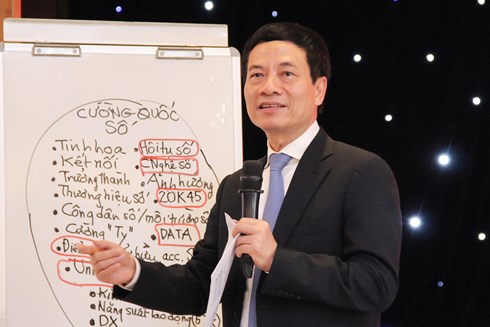 CƯỜNG QUỐC
SỐ
• Tinh hoa • Hội tụ số
• Kết nối • CNghệ số
• Trưởng thành • Ảnh hưởng
• Thương hiệu số • 20K45
• Công dân số / môi trường số
• Cường "Tỷ" • DATA
• bửu acc.
• Uni
• Ki
• Năng suất lao động
• DX